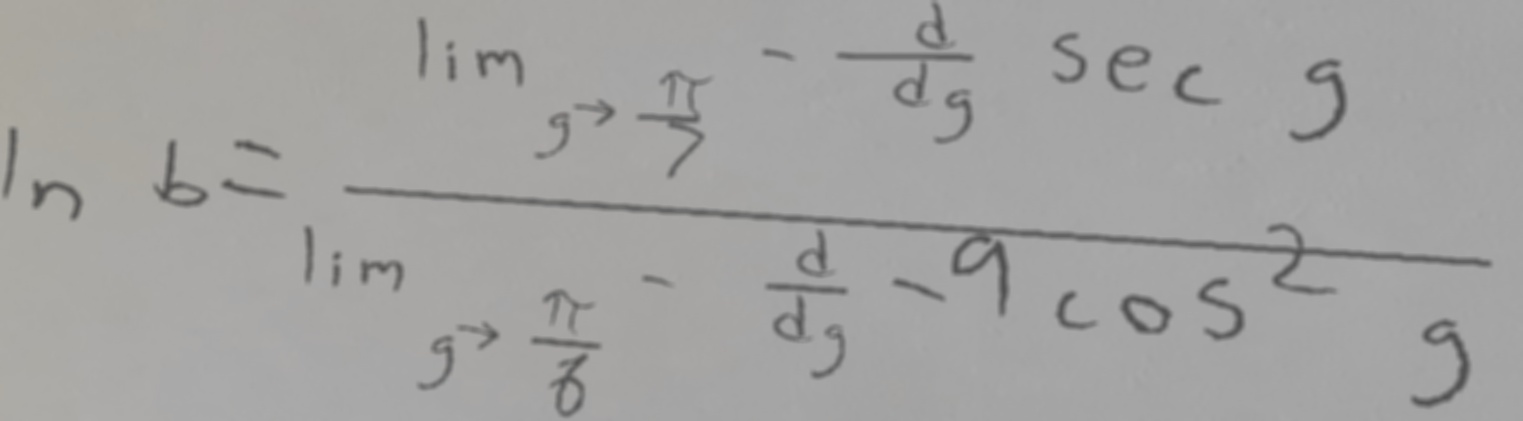 ln b = \frac{\lim_{g \to \frac{\pi}{7}^-} \frac{d}{dg} \sec g}{\lim_{g \to \frac{\pi}{8}^-} \frac{d}{dg} -9 \cos^2 g}